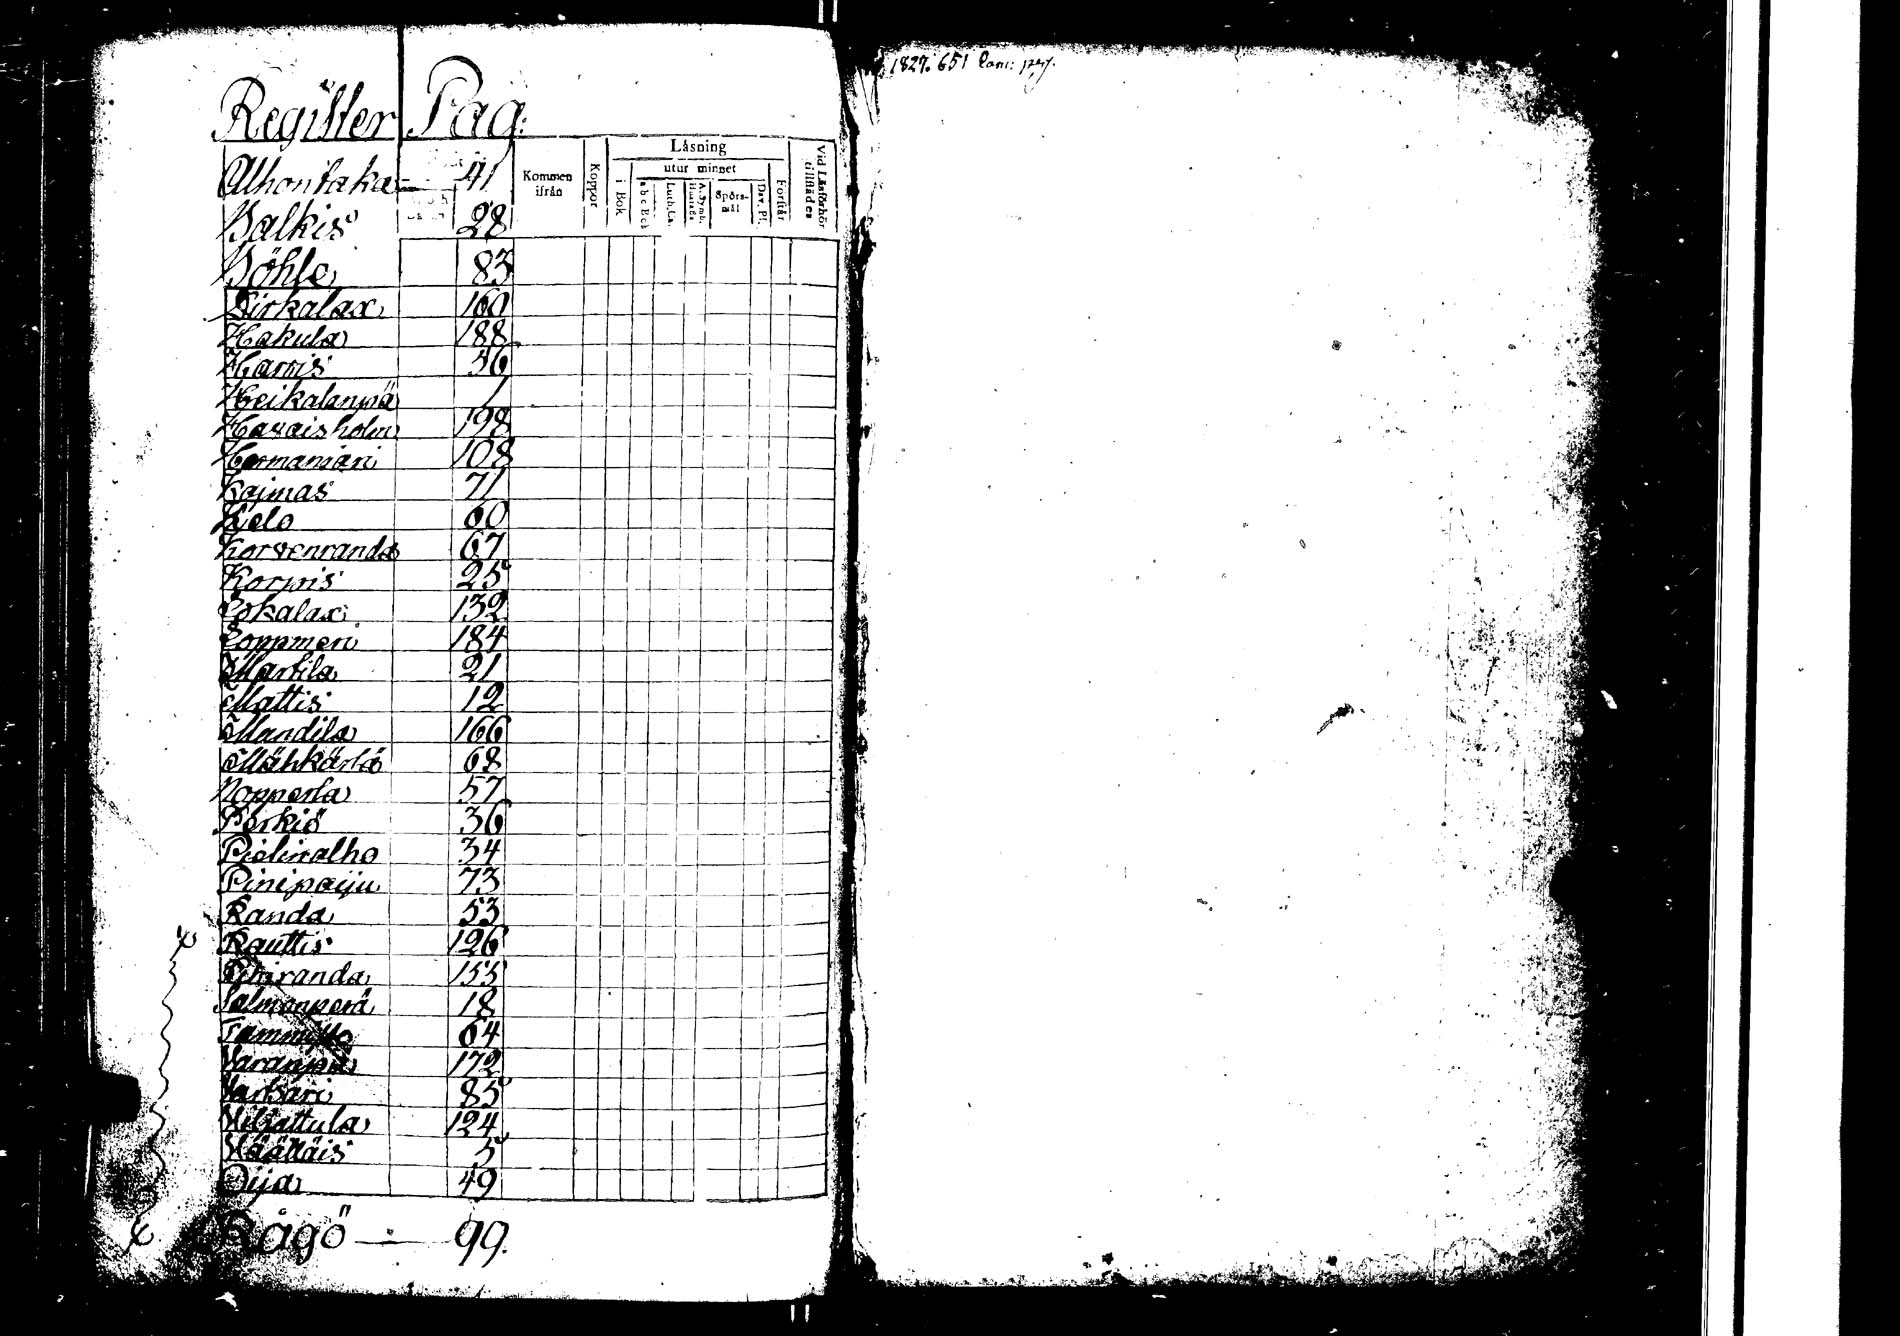 Register Pag:
Kommen ifrån Koppor Läsning utur minnet i Bok a b c Bok Luth. Ca. A. Symb. Hustafl. Spörsmål Dav. Ps. Förstår Vid Läsförhör tillstädes
Alhontaka 41
Balkis 28
Böhle 83
Dirkalax 160
Hakula 188
Harris 56
Heikalanpä 1
Havaisholm 198
Hermansari 108
Kajmas 71
Kelo 60
Korvenranda 67
Korpis 25
Lokalax 132
Loppmeri 184
Martila 21
Mattis 12
Mandila 166
Mähkärlä 68
Nopperla 57
Perkiö 36
Pielinalho 34
Pinipaiju 73
Randa 53
Rauttis 126
Rihiranda 155
Salmenperä 18
Tammitto 64
Varanpää 172
Vartsari 85
Viljattula 124
Väättäis 5
Öija 49
Rågö 99.
1827. 651